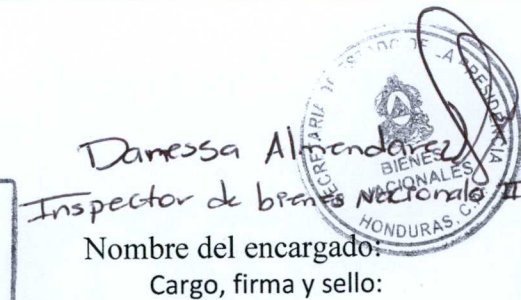 SECRETARIA DE ESTADO DE LA PRESIDENCIA
BIENES
NACIONALES
HONDURAS, C.
Danessa Almendarez
Inspector de bienes Nacionales II
Nombre del encargado:
Cargo, firma y sello: